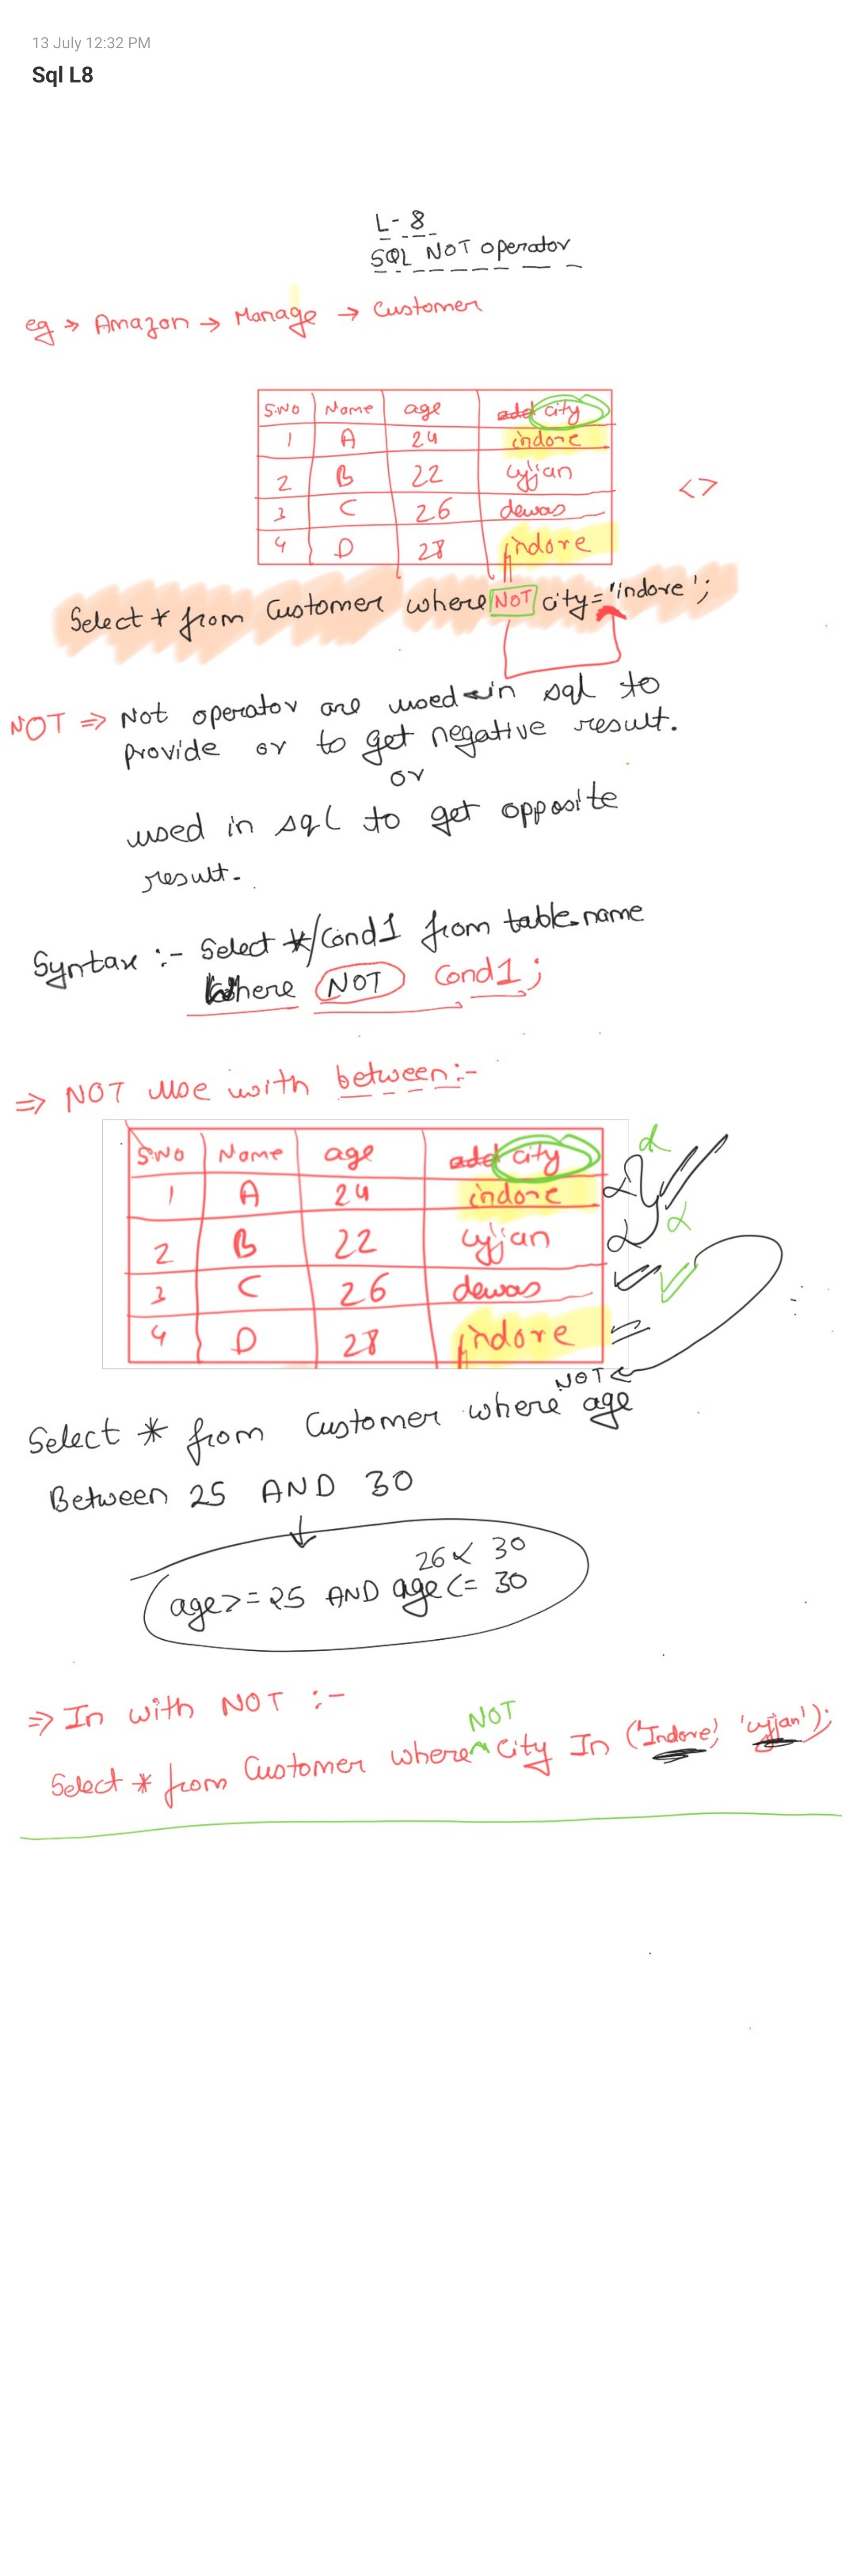 13 July 12:32 PM
Sql L8
L-8
SQL NOT operator
eg → Amazon → Manage → Customer
S.No Name age add city
1 A 24 indore
2 B 22 ujjan
3 C 26 dewas
4 D 28 indore
<>
Select * from Customer where NOT city='indore';
NOT ⇒ Not operator are used in sql to
provide or to get negative result.
or
used in sql to get opposite
result.
Syntax :- Select */Cond1 from table_name
Where NOT Cond1;
⇒ NOT use with between:-
S.No Name age add city
1 A 24 indore
2 B 22 ujjan
3 C 26 dewas
4 D 28 indore
NOT
Select * from Customer where age
Between 25 AND 30
26 < 30
age >= 25 AND age <= 30
⇒ In with NOT :-
NOT
Select * from Customer where city In ('Indore', 'ujjan');